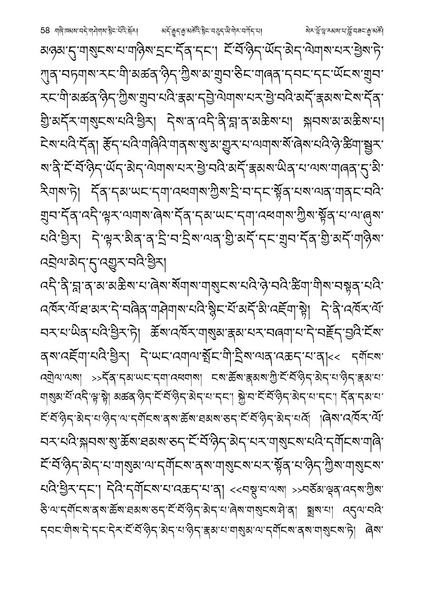 58 གཞི་ཁམས་བདེ་གཤེགས་སྙིང་པོའི་སྐོར། མདོ་རྒྱུད་རྒྱ་མཚོའི་སྙིང་བཅུད་ཡི་གེར་བཀོད་པ། སེར་ཕྲེང་
མཉམ་དུ་གསུངས་པ་གཉིས་དྲང་དོན་དང་། ངོ་བོ་ཉིད་ཡོད་མེད་ལེགས་པར་ཕྱེས་ཏེ་
ཀུན་བཏགས་རང་གི་མཚན་ཉིད་ཀྱིས་མ་གྲུབ་ཅིང་གཞན་དབང་དང་ཡོངས་གྲུབ་
རང་གི་མཚན་ཉིད་ཀྱིས་གྲུབ་པའི་རྣམ་དབྱེ་ལེགས་པར་ཕྱེ་བའི་མདོ་རྣམས་ངེས་དོན་
གྱི་མདོར་གསུངས་པའི་ཕྱིར། དེས་ན་འདི་ནི་བླ་ན་མཆིས་པ། སྐབས་མ་མཆིས་པ།
ངེས་པའི་དོན། རྩོད་པའི་གཞིའི་གནས་སུ་མ་གྱུར་པ་ལགས་སོ་ཞེས་པའི་ཉེ་ཚིག་སྦྱར་
ས་ནི་ངོ་བོ་ཉིད་ཡོད་མེད་ལེགས་པར་ཕྱེ་བའི་མདོ་རྣམས་ཡིན་པ་ལས་གཞན་དུ་མི་
རིགས་ཏེ། དོན་དམ་ཡང་དག་འཕགས་ཀྱིས་དྲི་བ་དང་སྟོན་པས་ལན་གནང་བའི་
གྲུབ་དོན་འདི་ལྟར་ལགས་ཞེས་དོན་དམ་ཡང་དག་འཕགས་ཀྱིས་སྟོན་པ་ལ་ཞུས་
པའི་ཕྱིར། དེ་ལྟར་མིན་ན་དྲི་བ་དྲིས་ལན་གྱི་མདོ་དང་གྲུབ་དོན་གྱི་མདོ་གཉིས་
འབྲེལ་མེད་དུ་འགྱུར་བའི་ཕྱིར།
འདི་ནི་བླ་ན་མ་མཆིས་པ་ཞེས་སོགས་གསུངས་པའི་ཉེ་བའི་ཚིག་གིས་བསྟན་པའི་
འཁོར་ལོ་ཐ་མར་དེ་བཞིན་གཤེགས་པའི་སྙིང་པོ་མདོ་མི་འཇོག་སྟེ། དེ་ནི་འཁོར་ལོ་
བར་པ་ཡིན་པའི་ཕྱིར་ཏེ། ཆོས་འཁོར་གསུམ་རྣམ་པར་བཞག་པ་དེ་བརྗོད་བྱའི་ངོས་
ནས་འཇོག་པའི་ཕྱིར། དེ་ཡང་འགལ་སྤོང་གི་དྲིས་ལན་འཆད་པ་ན།<< དགོངས་
འགྲེལ་ལས། >>དོན་དམ་ཡང་དག་འཕགས། ངས་ཆོས་རྣམས་ཀྱི་ངོ་བོ་ཉིད་མེད་པ་ཉིད་རྣམ་པ་
གསུམ་པོ་འདི་ལྟ་སྟེ། མཚན་ཉིད་ངོ་བོ་ཉིད་མེད་པ་དང་། སྐྱེ་བ་ངོ་བོ་ཉིད་མེད་པ་དང་། དོན་དམ་པ་
ངོ་བོ་ཉིད་མེད་པ་ཉིད་ལ་དགོངས་ནས་ཆོས་ཐམས་ཅད་ངོ་བོ་ཉིད་མེད་པའོ། །ཞེས་འཁོར་ལོ་
བར་པའི་སྐབས་སུ་ཆོས་ཐམས་ཅད་ངོ་བོ་ཉིད་མེད་པར་གསུངས་པའི་དགོངས་གཞི་
ངོ་བོ་ཉིད་མེད་པ་གསུམ་ལ་དགོངས་ནས་གསུངས་པར་སྟོན་པ་ཉིད་ཀྱིས་གསུངས་
པའི་ཕྱིར་དང་། དེའི་དགོངས་པ་འཆད་པ་ན། <<བསྡུ་བ་ལས། >>བཅོམ་ལྡན་འདས་ཀྱིས་
ཅི་ལ་དགོངས་ནས་ཆོས་ཐམས་ཅད་ངོ་བོ་ཉིད་མེད་པ་ཞེས་གསུངས་ཤེ་ན། སྨྲས་པ། འདུལ་བའི་
དབང་གིས་དེ་དང་དེར་ངོ་བོ་ཉིད་མེད་པ་ཉིད་རྣམ་པ་གསུམ་ལ་དགོངས་ནས་གསུངས་ཏེ། ཞེས་